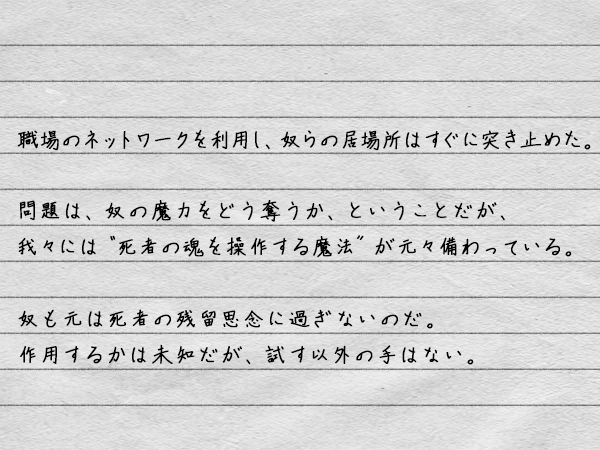 職場のネットワークを利用し、奴らの居場所はすぐに突き止めた。
問題は、奴の魔力をどう奪うか、ということだが、
我々には〝死者の魂を操作する魔法〞が元々備わっている。
奴も元は死者の残留思念に過ぎないのだ。
作用するかは未知だが、試す以外の手はない。